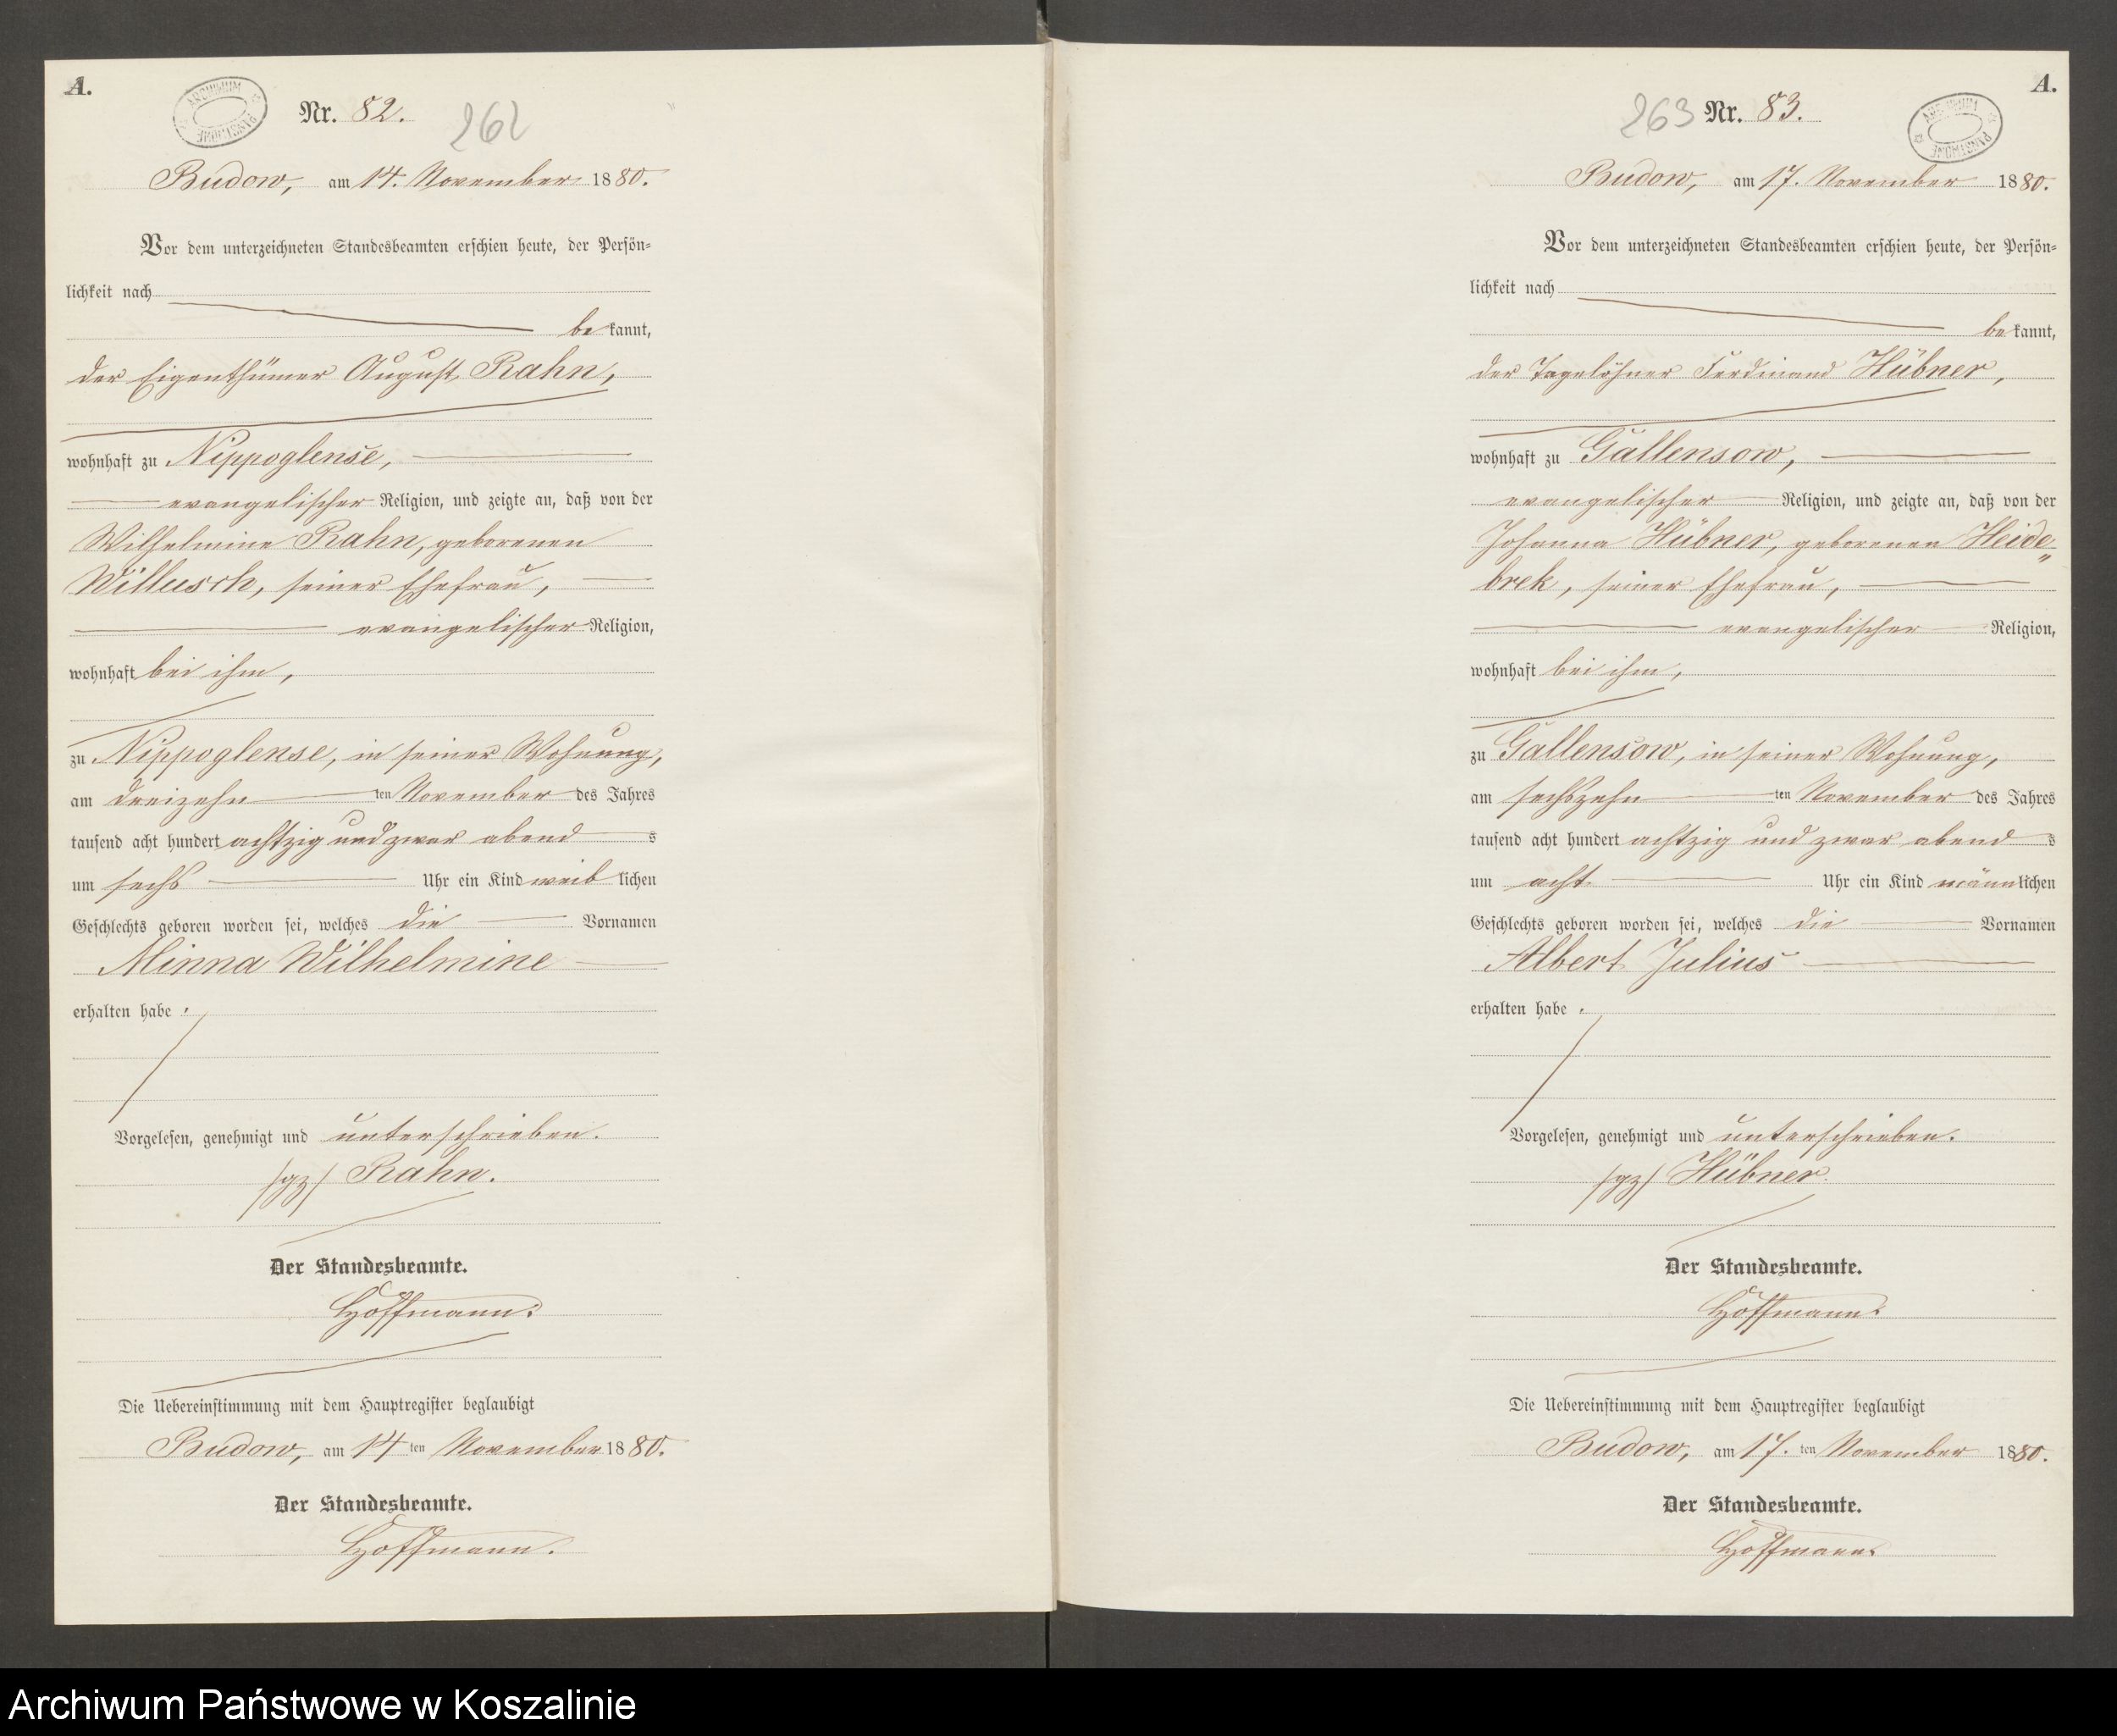 A.
ARCHIWUM PAŃSTWOWE
Nr. 82.
262
Budow, am 14. November 1880.
Vor dem unterzeichneten Standesbeamten erschien heute, der Persön-
lichkeit nach
be kannt,
der Eigenthümer August Rahn,
wohnhaft zu Nippoglense,
evangelischer Religion, und zeigte an, daß von der
Wilhelmine Rahn, geborenen
Willusch, seiner Ehefrau,
evangelischer Religion,
wohnhaft bei ihm,
zu Nippoglense, in seiner Wohnung,
am dreizehn ten November des Jahres
tausend acht hundert achtzig und zwar abend s
um sechs Uhr ein Kind weib lichen
Geschlechts geboren worden sei, welches die Vornamen
Minna Wilhelmine
erhalten habe.
Vorgelesen, genehmigt und unterschrieben.
/gz/ Rahn.
Der Standesbeamte.
Hoffmann.
Die Uebereinstimmung mit dem Hauptregister beglaubigt
Budow, am 14 ten November 1880.
Der Standesbeamte.
Hoffmann.
A.
263 Nr. 83.
ARCHIWUM PAŃSTWOWE
Budow, am 17. November 1880.
Vor dem unterzeichneten Standesbeamten erschien heute, der Persön-
lichkeit nach
be kannt,
der Tagelöhner Ferdinand Hübner,
wohnhaft zu Gallensow,
evangelischer Religion, und zeigte an, daß von der
Johanna Hübner, geborenen Heide-
brek, seiner Ehefrau,
evangelischer Religion,
wohnhaft bei ihm,
zu Gallensow, in seiner Wohnung,
am sechszehn ten November des Jahres
tausend acht hundert achtzig und zwar abend s
um acht Uhr ein Kind männlichen
Geschlechts geboren worden sei, welches die Vornamen
Albert Julius
erhalten habe.
Vorgelesen, genehmigt und unterschrieben.
/gz/ Hübner.
Der Standesbeamte.
Hoffmann.
Die Uebereinstimmung mit dem Hauptregister beglaubigt
Budow, am 17. ten November 1880.
Der Standesbeamte.
Hoffmann
Archiwum Państwowe w Koszalinie